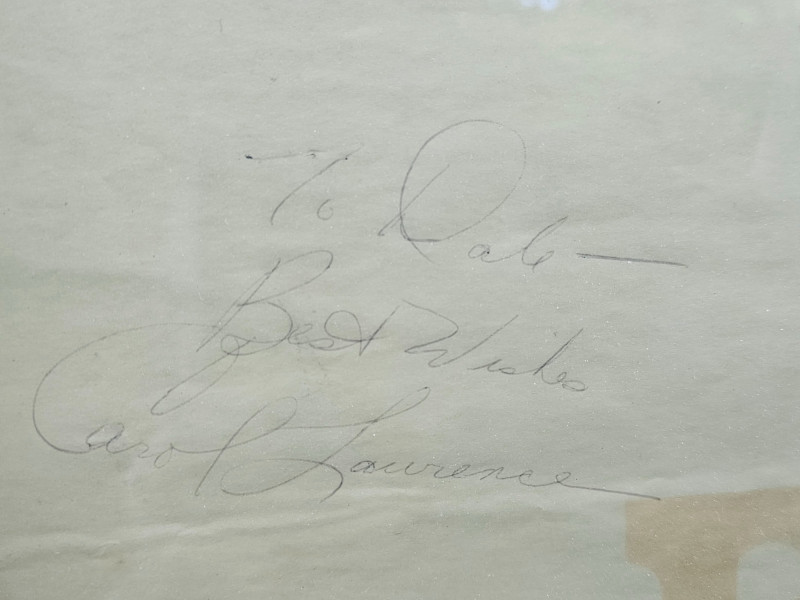 To Dale —
Best Wishes
Carol Lawrence